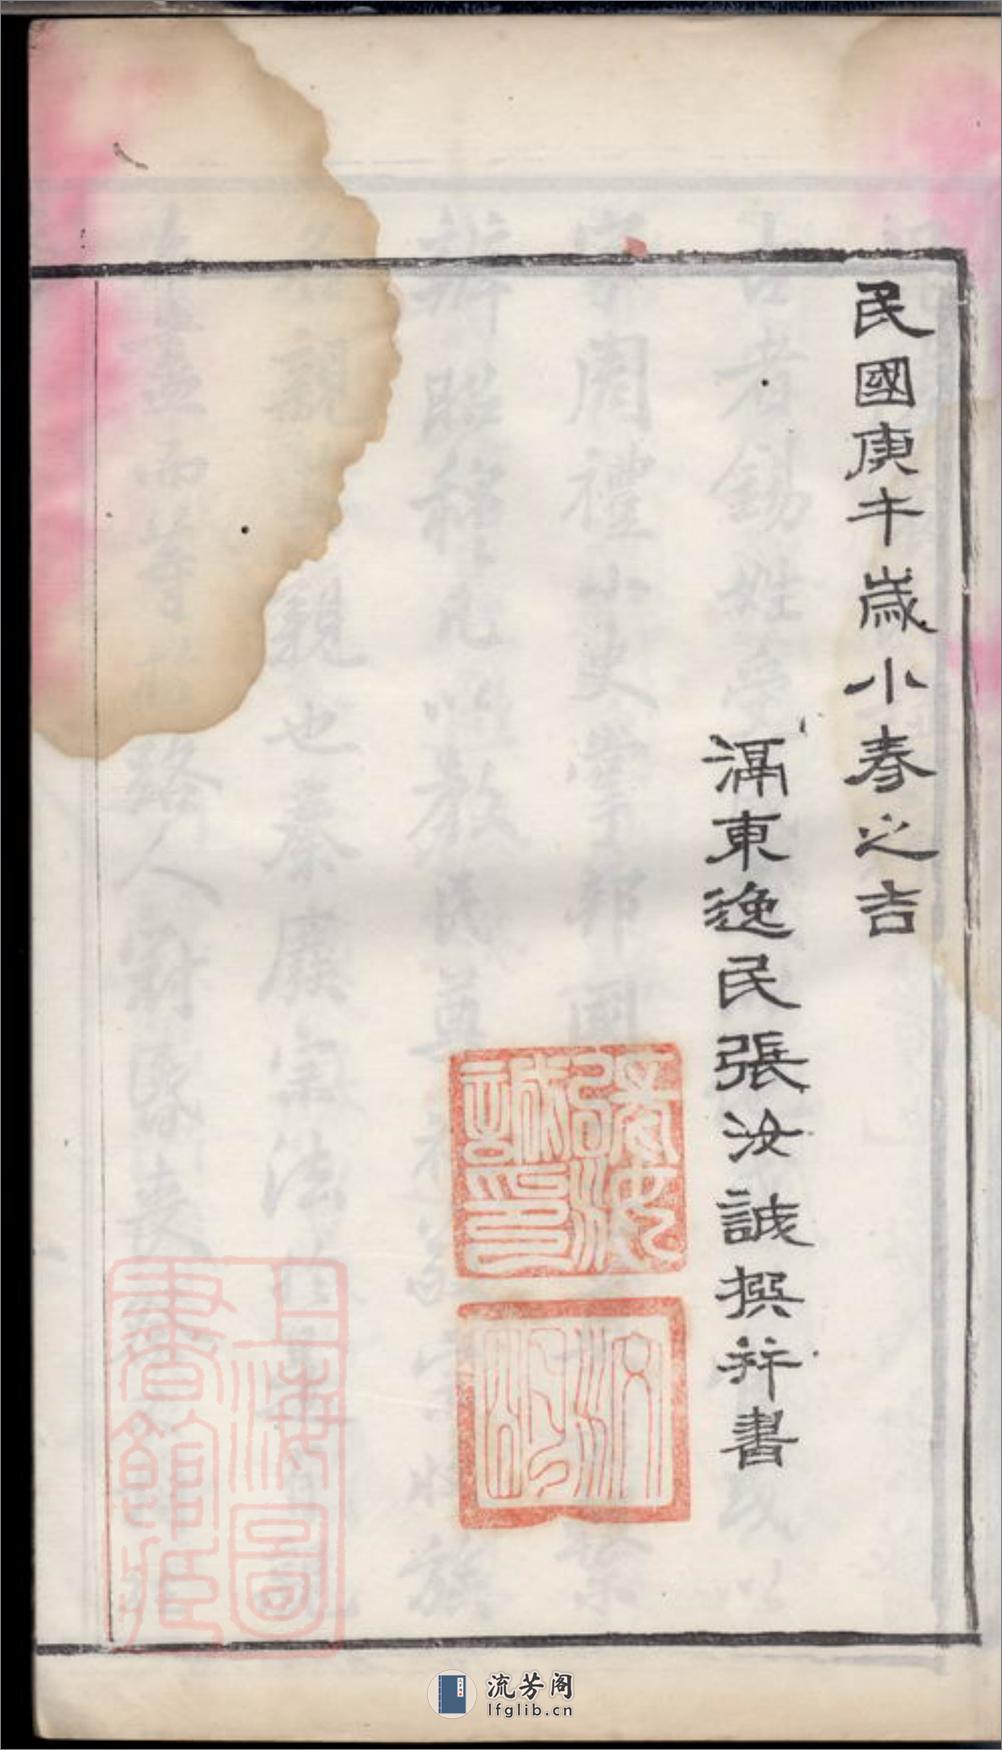 民國庚午歲小春之吉
滆東逸民張汝誠撰并書
張汝誠印
上海圖書館藏
流芳阁
lfglib.cn